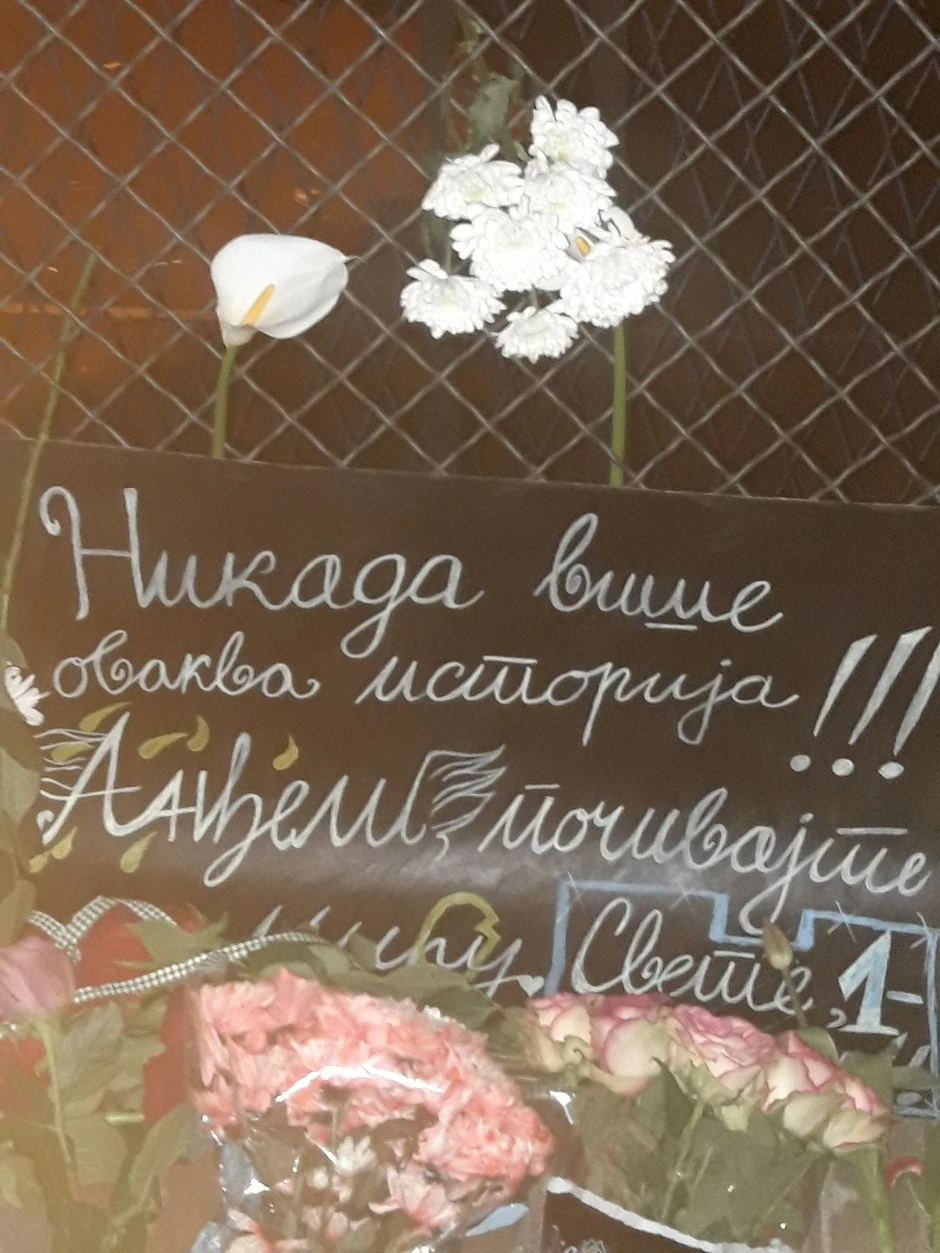 Никада више
оваква историја!!!
Анђели почивајте
миру. Свете, 1-